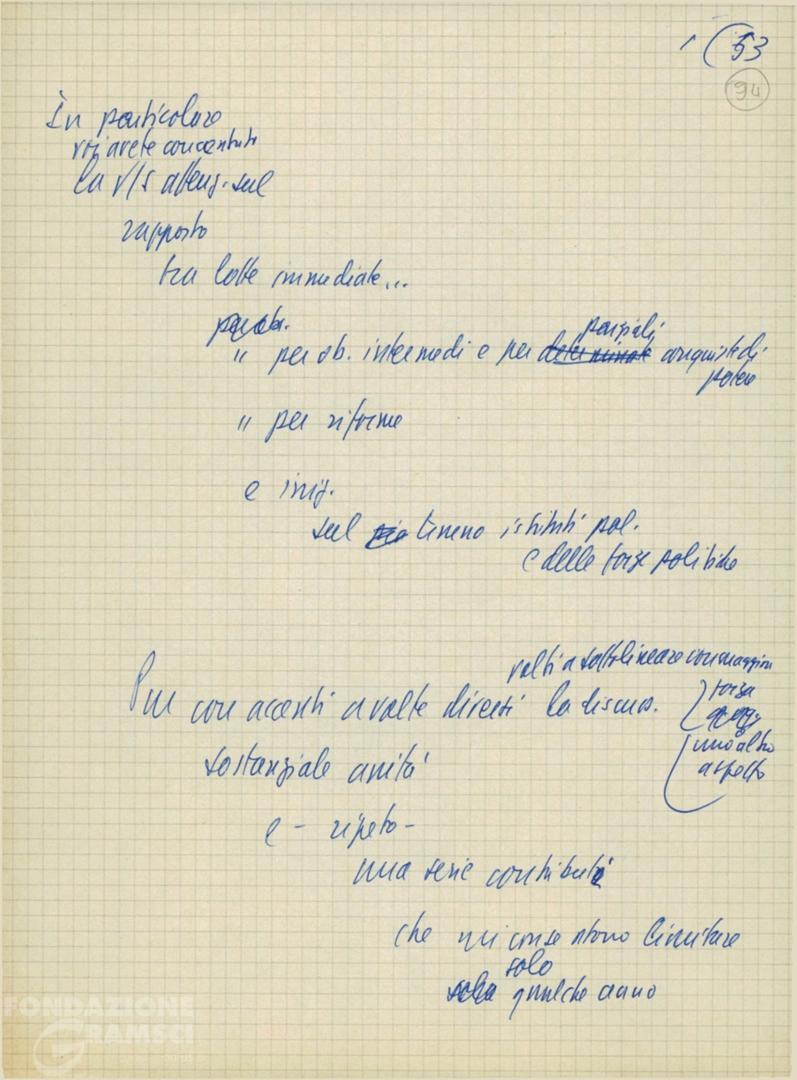 1 (53
94
In particolare
voi avete concentrato
la v/s attenz. sul
rapporto
tra lotte immediate...
" per ob. intermedi e per determinate parziali conquiste di
potere
" per riforme
e iniz.
sul terreno istituti pol.
e delle forze politiche
volti a sottolineare con maggior
forza
uno o altro
aspetto
Pur con accenti a volte diversi la discuss.
sostanziale unità
e - ripeto -
una serie contributi
che mi consentono limitare
solo
solo qualche anno
FONDAZIONE
GRAMSCI